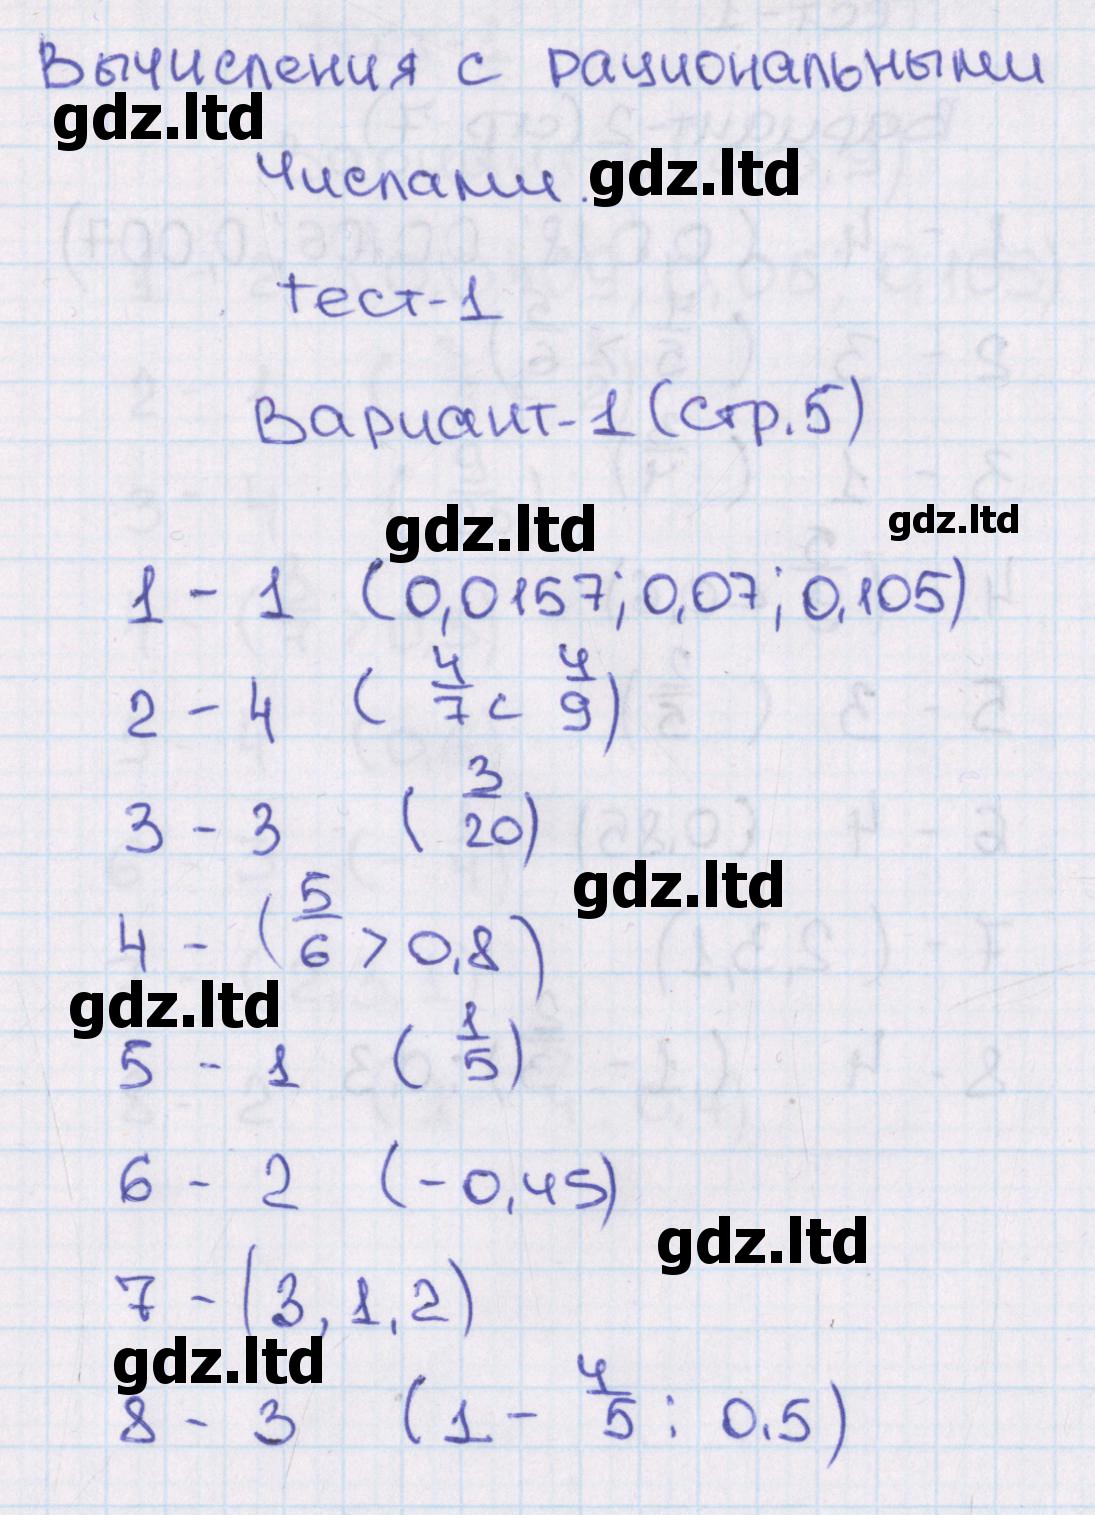 Вычисления с рациональными
gdz.ltd
числами.
gdz.ltd
тест-1
Вариант-1 (стр.5)
gdz.ltd
gdz.ltd
1 - 1 (0,0157; 0,07; 0,105)
2 - 4 ( 4/7 < 4/9 )
3 - 3 ( 3/20 )
gdz.ltd
4 - ( 5/6 > 0,8 )
gdz.ltd
5 - 1 ( 1/5 )
6 - 2 (-0,45)
gdz.ltd
7 - (3, 1, 2)
gdz.ltd
8 - 3 ( 1 - 4/5 : 0.5 )